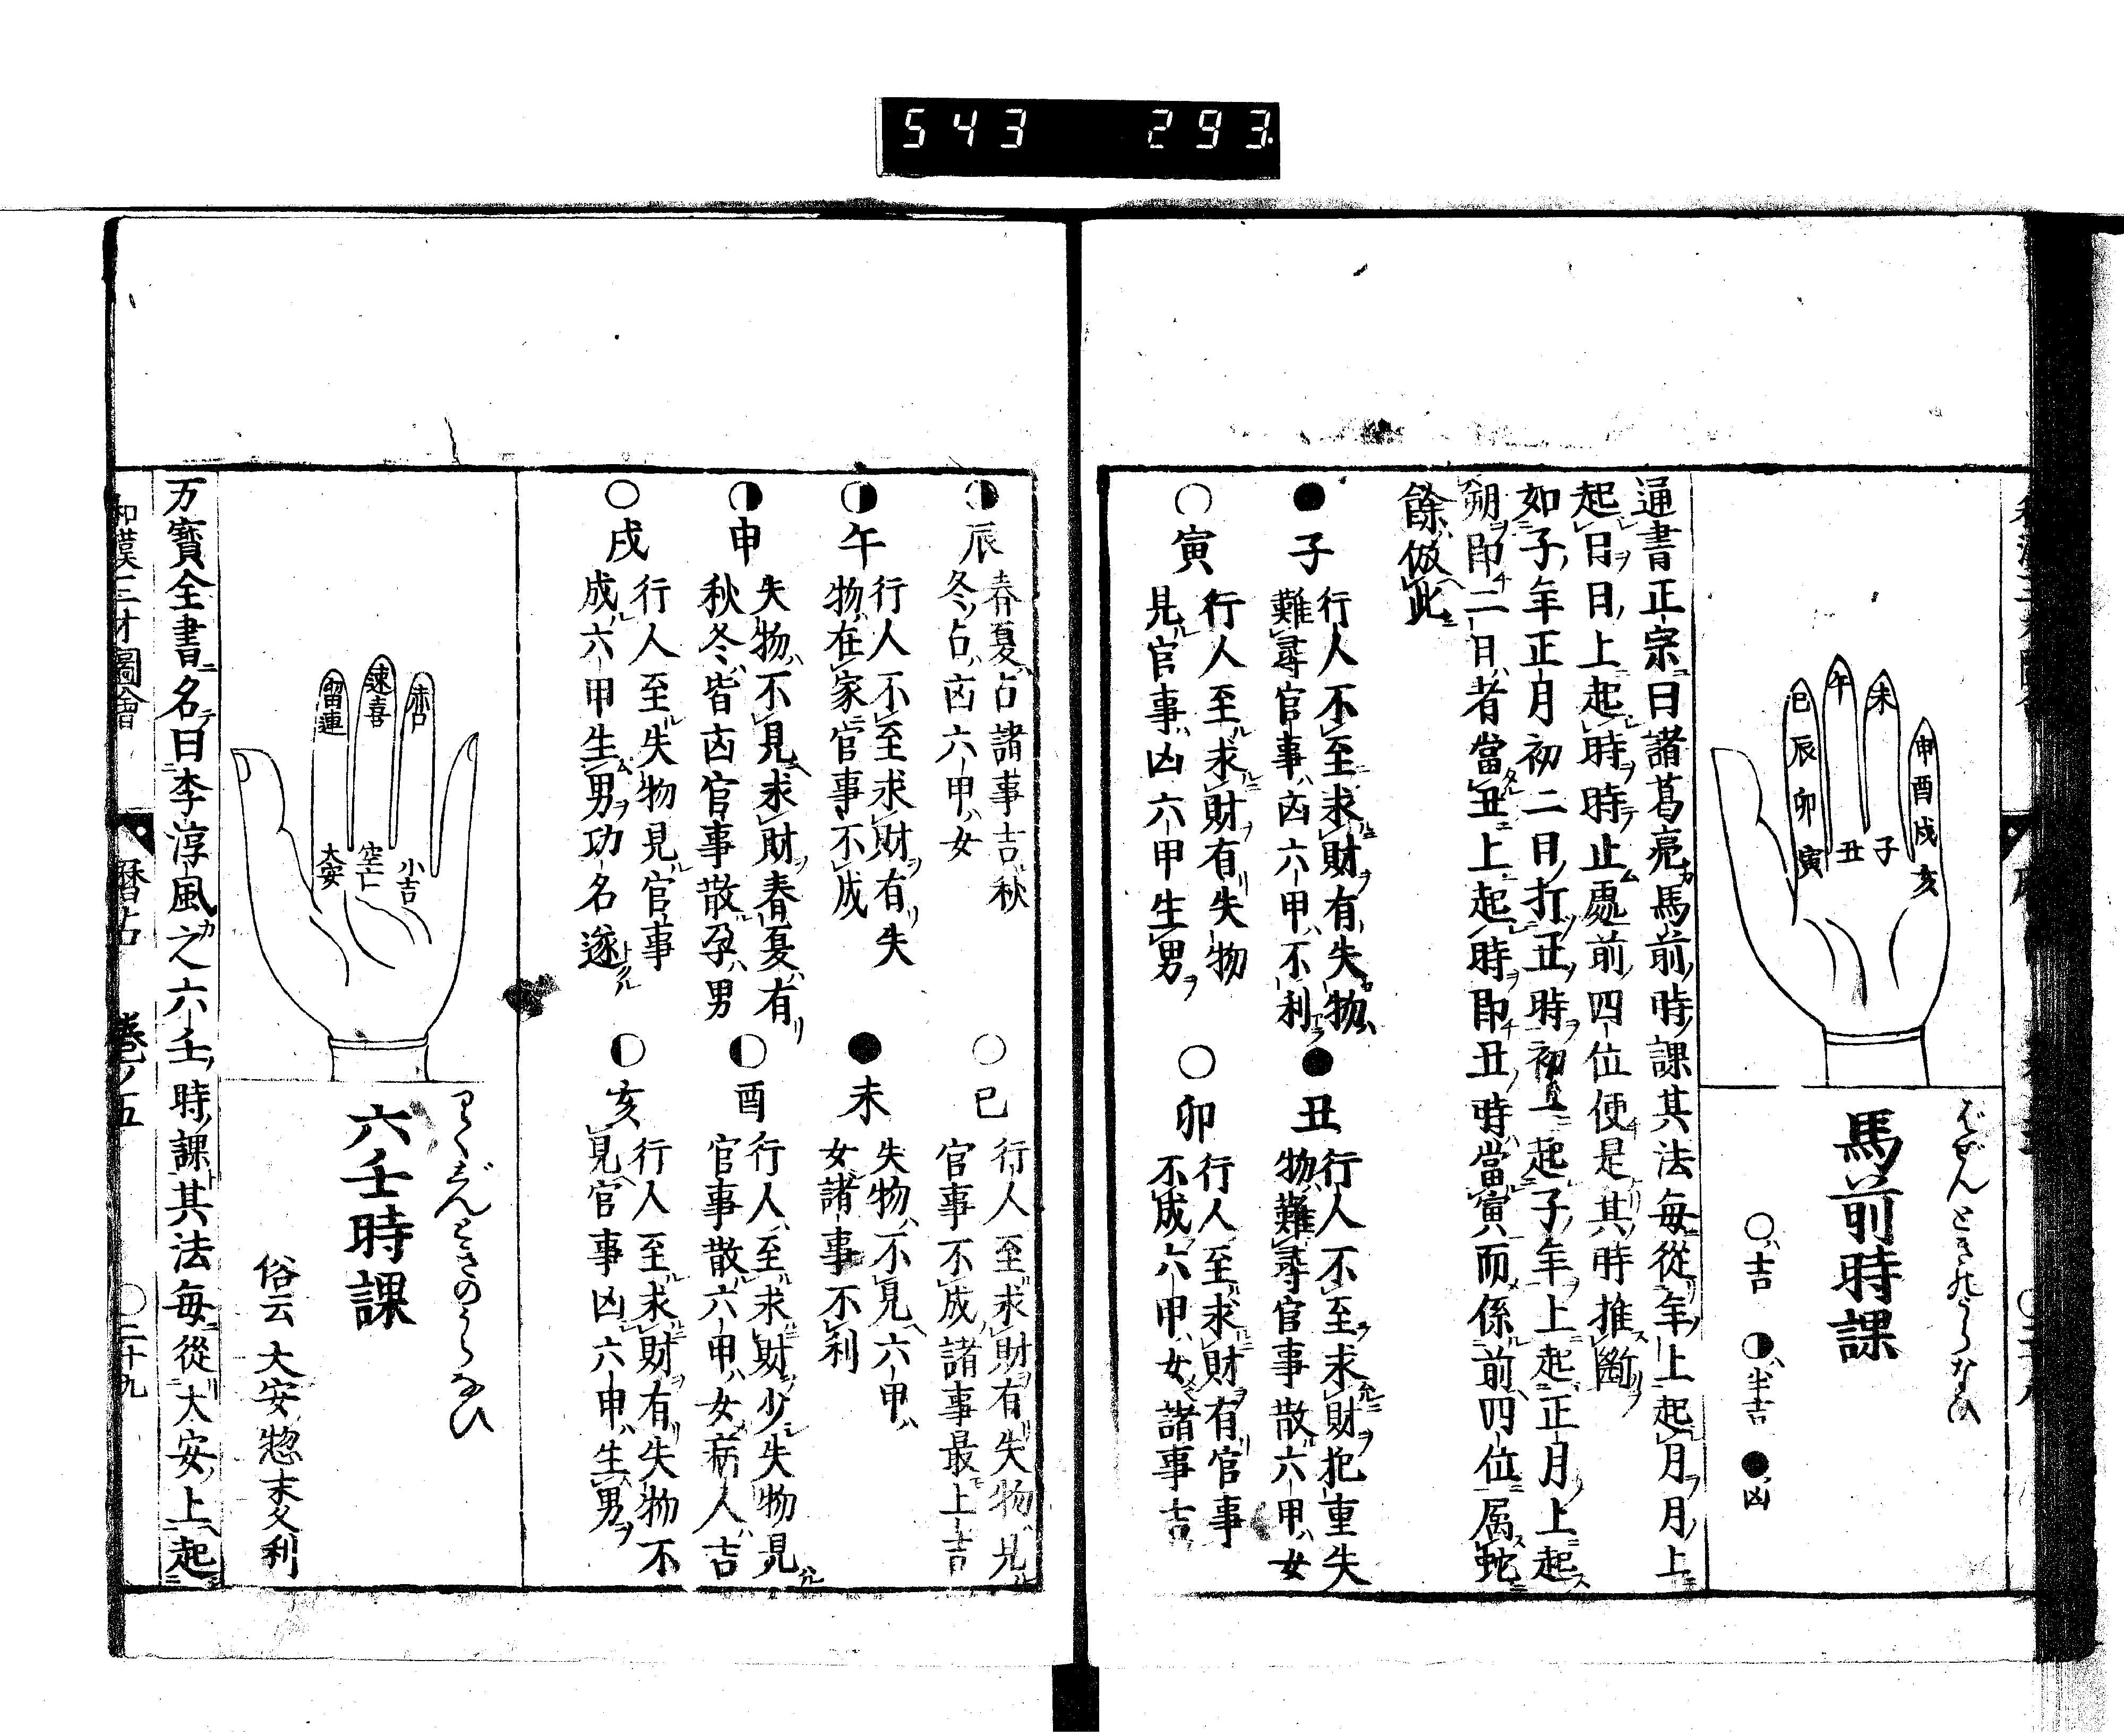 543 293
馬前時課
○ハ吉 ◑ハ半吉 ●ハ凶
巳 午 未 申
辰 酉
卯 戌
寅 丑 子 亥
通書正宗曰諸葛亮馬前時課其法毎從年上起月月上
起日日上起時時止處前四位便是其時推斷
如子年正月初二日打丑時初一起子年上起正月上起
朔即二日者當丑上起時即丑時當寅而係前四位属蛇
餘倣此
● 子 行人不至求財有失物
難尋官事凶六甲不利
● 丑 行人不至求財犯重失
物難尋官事散六甲女
○ 寅 行人至求財有失物
見官事凶六甲生男
○ 卯 行人至求財有官事
不成六甲女諸事吉
◑ 辰 春夏占諸事吉秋
冬占凶六甲女
○ 巳 行人至求財有失物見
官事不成諸事最上吉
◑ 午 行人不至求財有失
物在家官事不成
● 未 失物不見六甲
女諸事不利
◑ 申 失物不見求財春夏有
秋冬皆凶官事散孕男
◐ 酉 行人至求財少失物見
官事散六甲女病人吉
○ 戌 行人至失物見官事
成六甲生男功名遂
◐ 亥 行人至求財有失物不
見官事凶六甲生男
りくじんときのうらなひ
六壬時課
俗云大安惣末久利
留連 速喜 赤口
大安 空亡 小吉
万寳全書名曰李淳風之六壬時課其法毎從大安上起
和漢三才圖會 暦占 巻ノ五 ○二十九